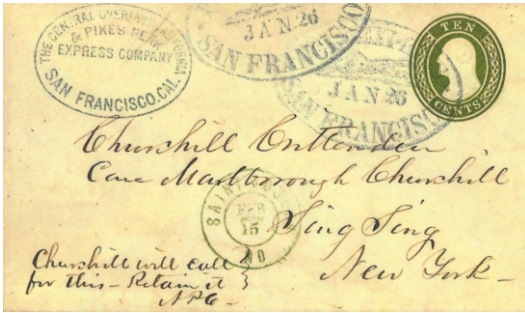 THE CENTRAL OVERLAND CALIFORNIA
& PIKES PEAK
EXPRESS COMPANY
SAN FRANCISCO.CAL.
JAN. 26
SAN FRANCISCO
JAN 26
SAN FRANCISCO
TEN
CENTS
Churchill Crittenden
Care Marlborough Churchill
Sing Sing
New York
SAINT JOSEPH
FEB
15
MO
Churchill will call
for this - Retain it
APC